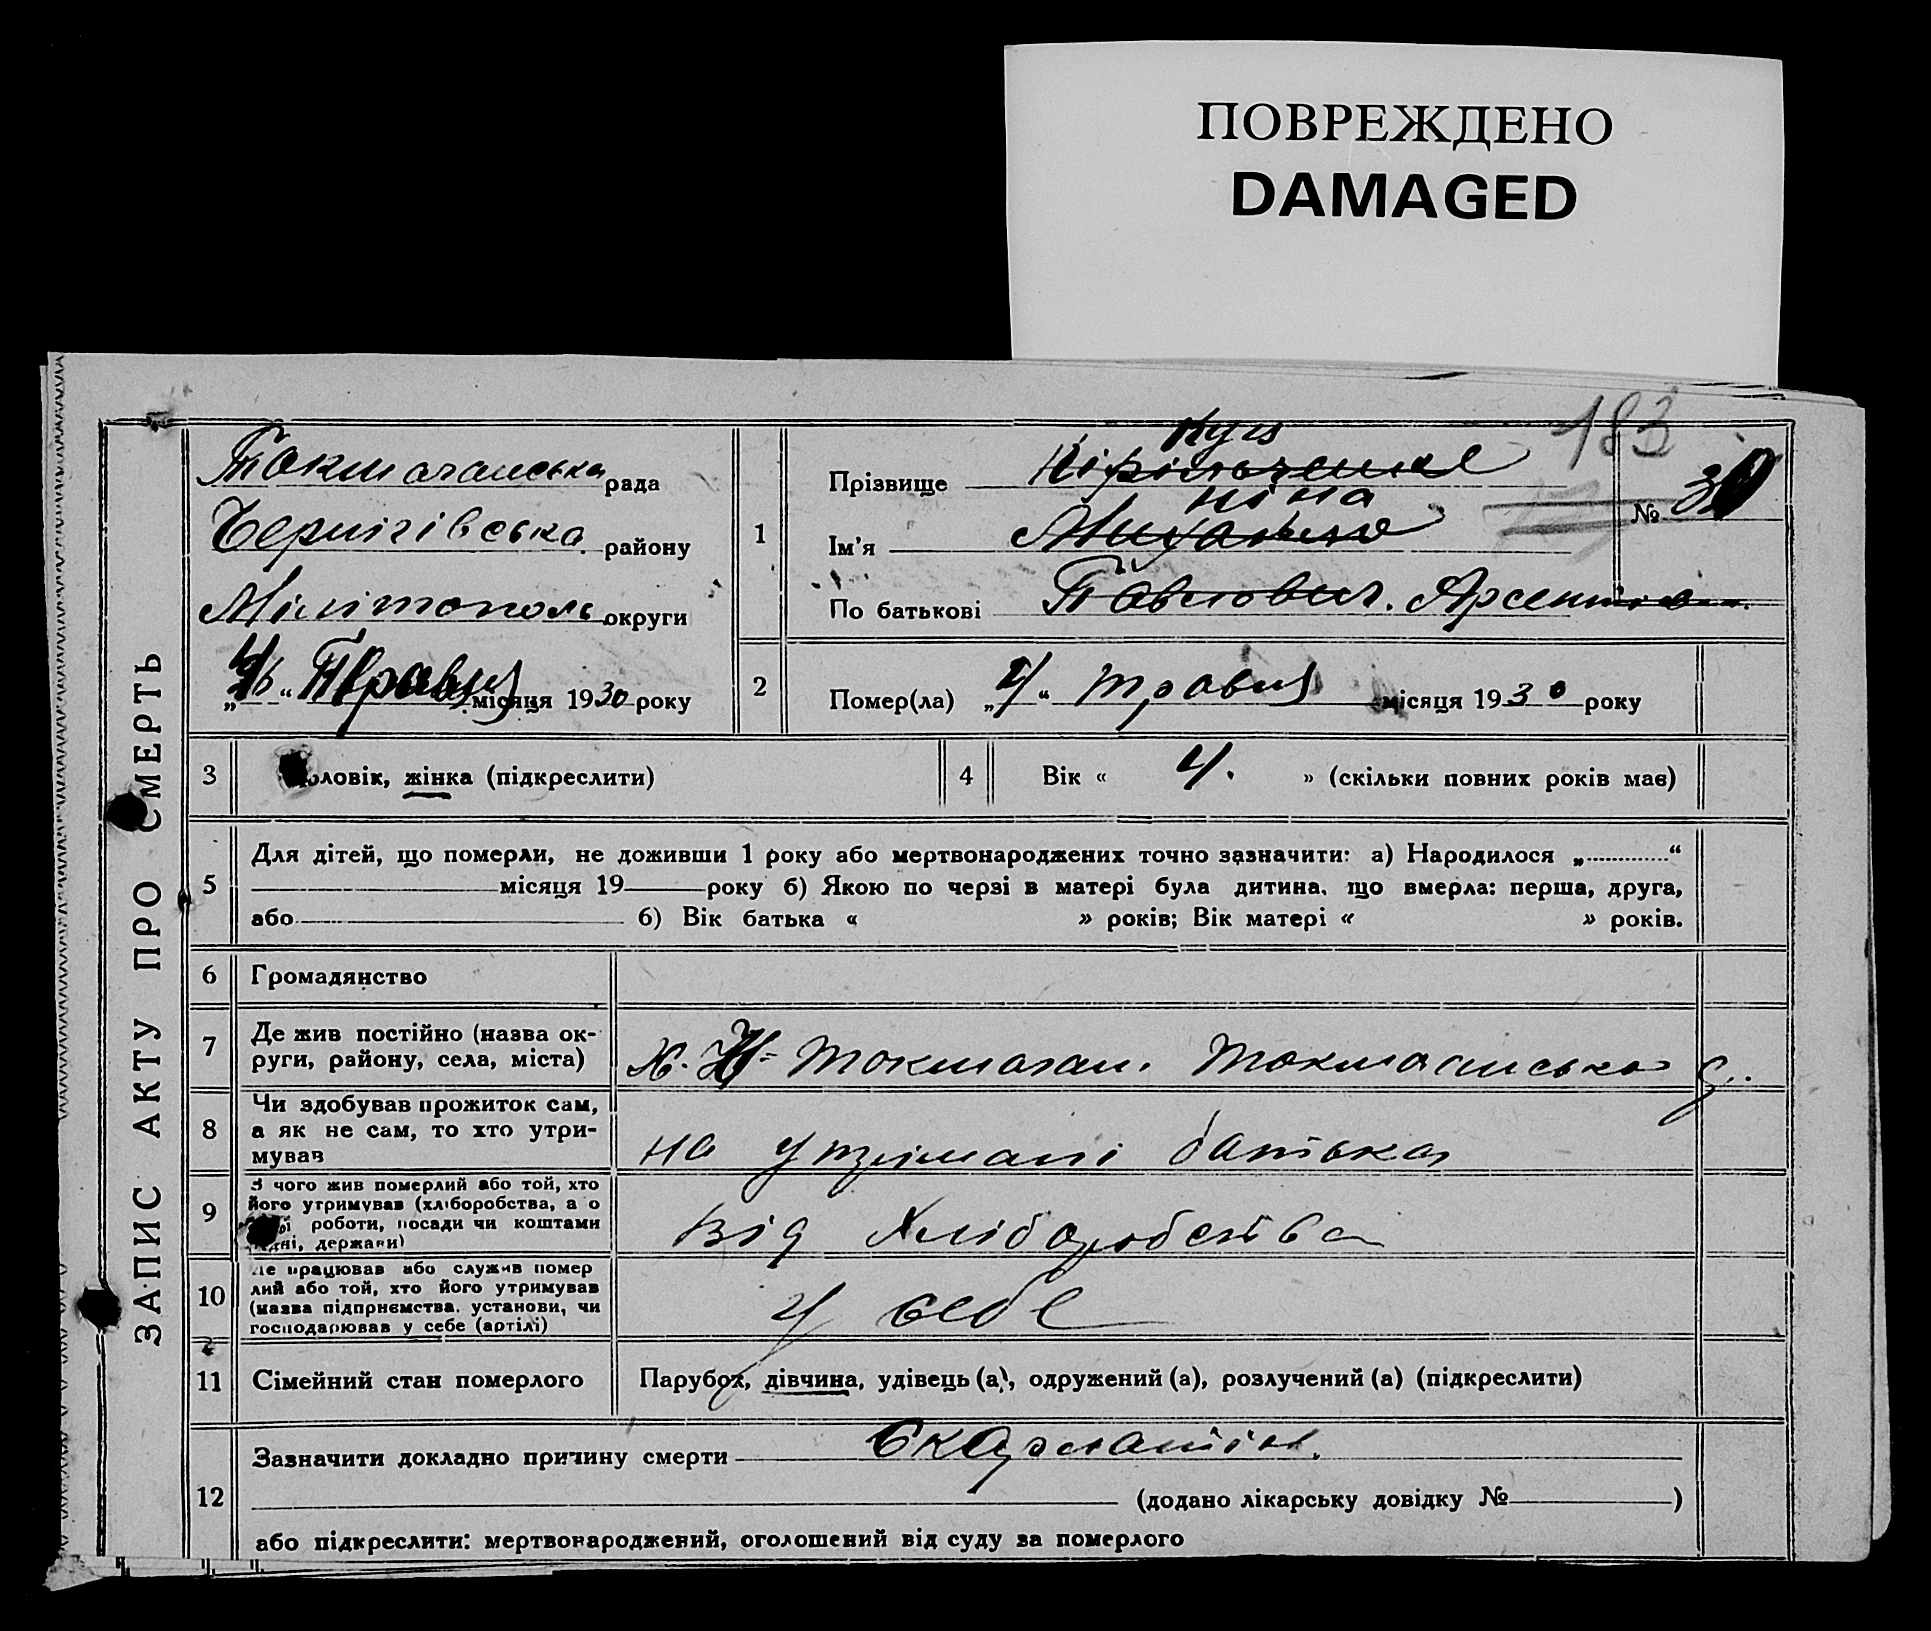 ПОВРЕЖДЕНО
DAMAGED
183
ЗАПИС АКТУ ПРО СМЕРТЬ
рада
Чернігівська району
Мілітополь округи
Травня місяця 1930 року
1
Прізвище
Ім'я Ніна
По батькові Павлович.
№ 30
2
Помер(ла) „4“ травня місяця 1930 року
3 Чоловік, жінка (підкреслити)
4 Вік « 4. » (скільки повних років має)
5 Для дітей, що померли, не доживши 1 року або мертвонароджених точно зазначити: а) Народилося „ “
місяця 19 року б) Якою по черзі в матері була дитина, що вмерла: перша, друга,
або б) Вік батька « » років; Вік матері « » років.
6 Громадянство
7 Де жив постійно (назва ок-
руги, району, села, міста)
8 Чи здобував прожиток сам,
а як не сам, то хто утри-
мував
на утрімані батька
9 З чого жив померлий або той, хто
його утримував (хліборобства, а о
роботи, посади чи коштами
рідні, держави)
від хліборобства
10 Де працював або служив помер
лий або той, хто його утримував
(назва підприємства, установи, чи
господарював у себе (артілі)
у себе
11 Сімейний стан померлого
Парубок, дівчина, удівець (а), одружений (а), розлучений (а) (підкреслити)
12 Зазначити докладно причину смерти Скарлатін.
(додано лікарську довідку № )
або підкреслити: мертвонароджений, оголошений від суду за померлого